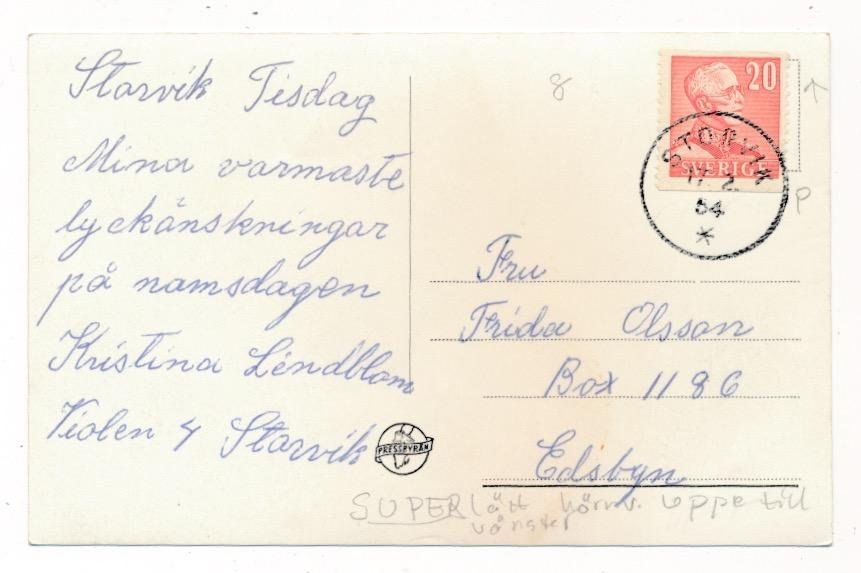 Storvik Tisdag
Mina varmaste
lyckönskningar
på namsdagen
Kristina Lendblom
Violen 4 Storvik
PRESSBYRÅN
8
20
SVERIGE
STORVIK
17 2
54
*
P
Fru
Frida Olsson
Box 1186
Edsbyn
SUPERlätt hörnv. uppe till
vänster